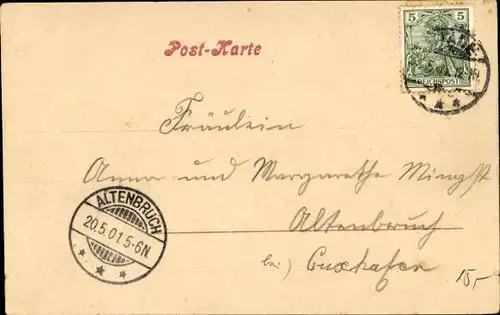 Post-Karte
5 5
REICHSPOST
Fräulein
Anna und Margarethe Mingst
ALTENBRUCH
20.5.01.5-6N.
Altenbruch
bei) Cuxhafen
15,-